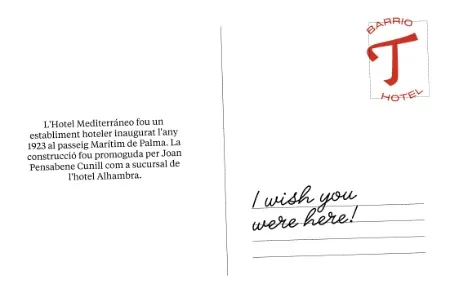 L'Hotel Mediterráneo fou un
establiment hoteler inaugurat l'any
1923 al passeig Marítim de Palma. La
construcció fou promoguda per Joan
Pensabene Cunill com a sucursal de
l'hotel Alhambra.
BARRIO
T
HOTEL
I wish you
were here!